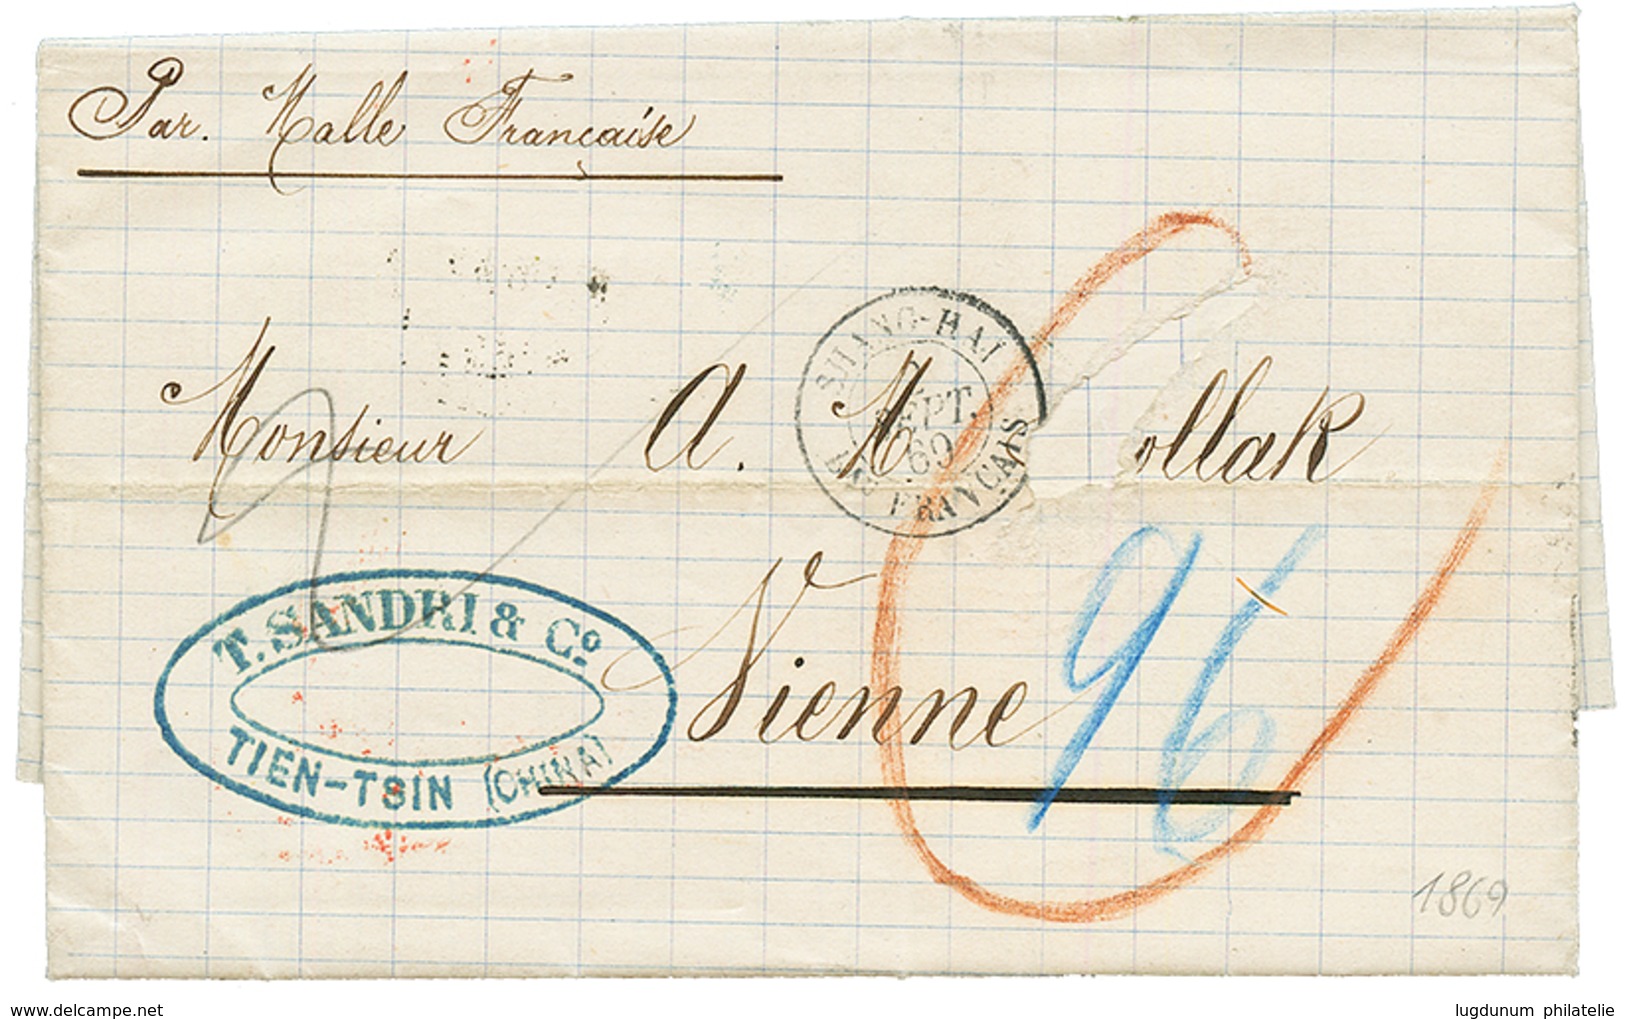 Par. Malle Française
SHANG-HAI
SEPT.
69
Bau FRANCAIS
Monsieur A. M ollak
T. SANDRI & Co.
TIEN-TSIN (CHINA)
Vienne
96
1869
delcampe.net
lugdunum philatelie